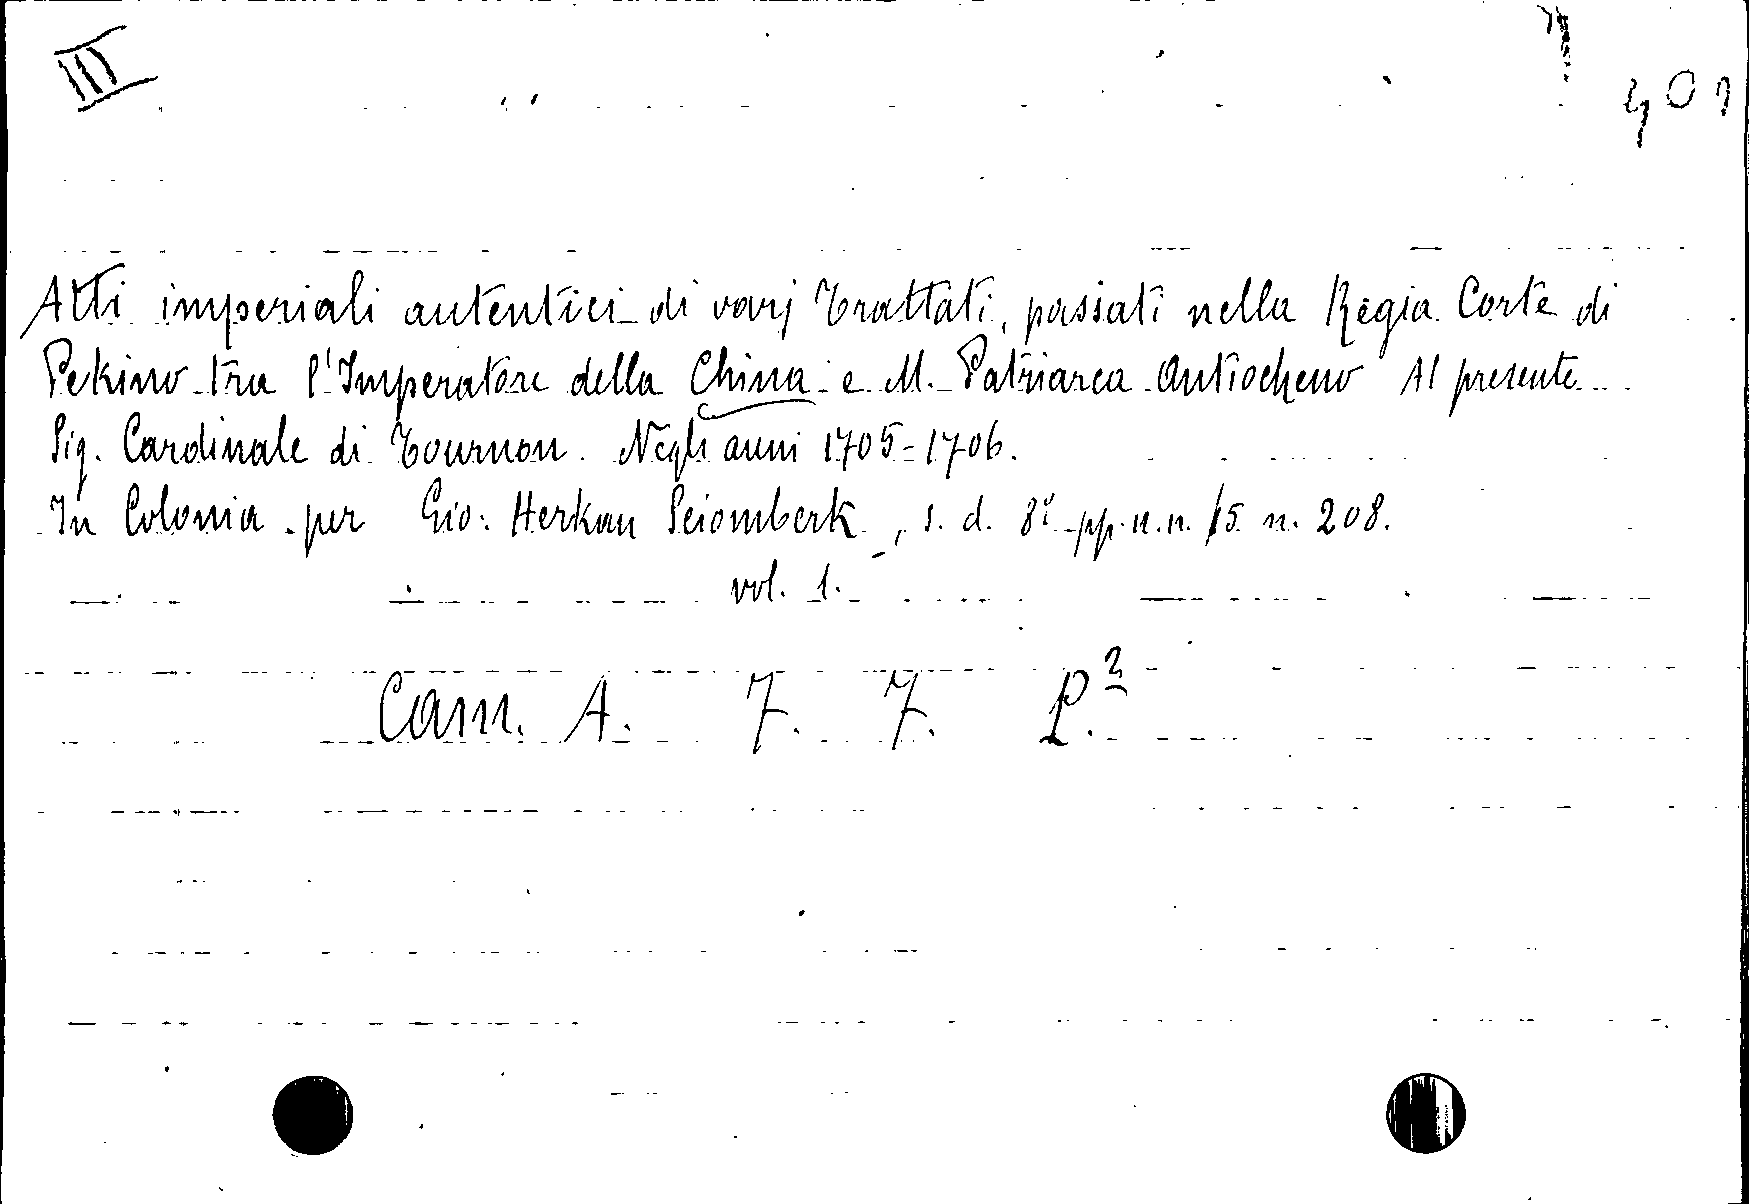 III
401
Atti imperiali autentici di varj Trattati, passati nella Regia Corte di
Pekino tra l'Imperatore della China e M. Patriarca Antiocheno Al presente
Sig. Cardinale di Tournon. Negli anni 1705=1706.
In Colonia per Gio: Herkan Sciomberk, s. d. 8° pp. n.n. 15 n. 208.
vol. 1.
Cam. A. 7. 7. P.2